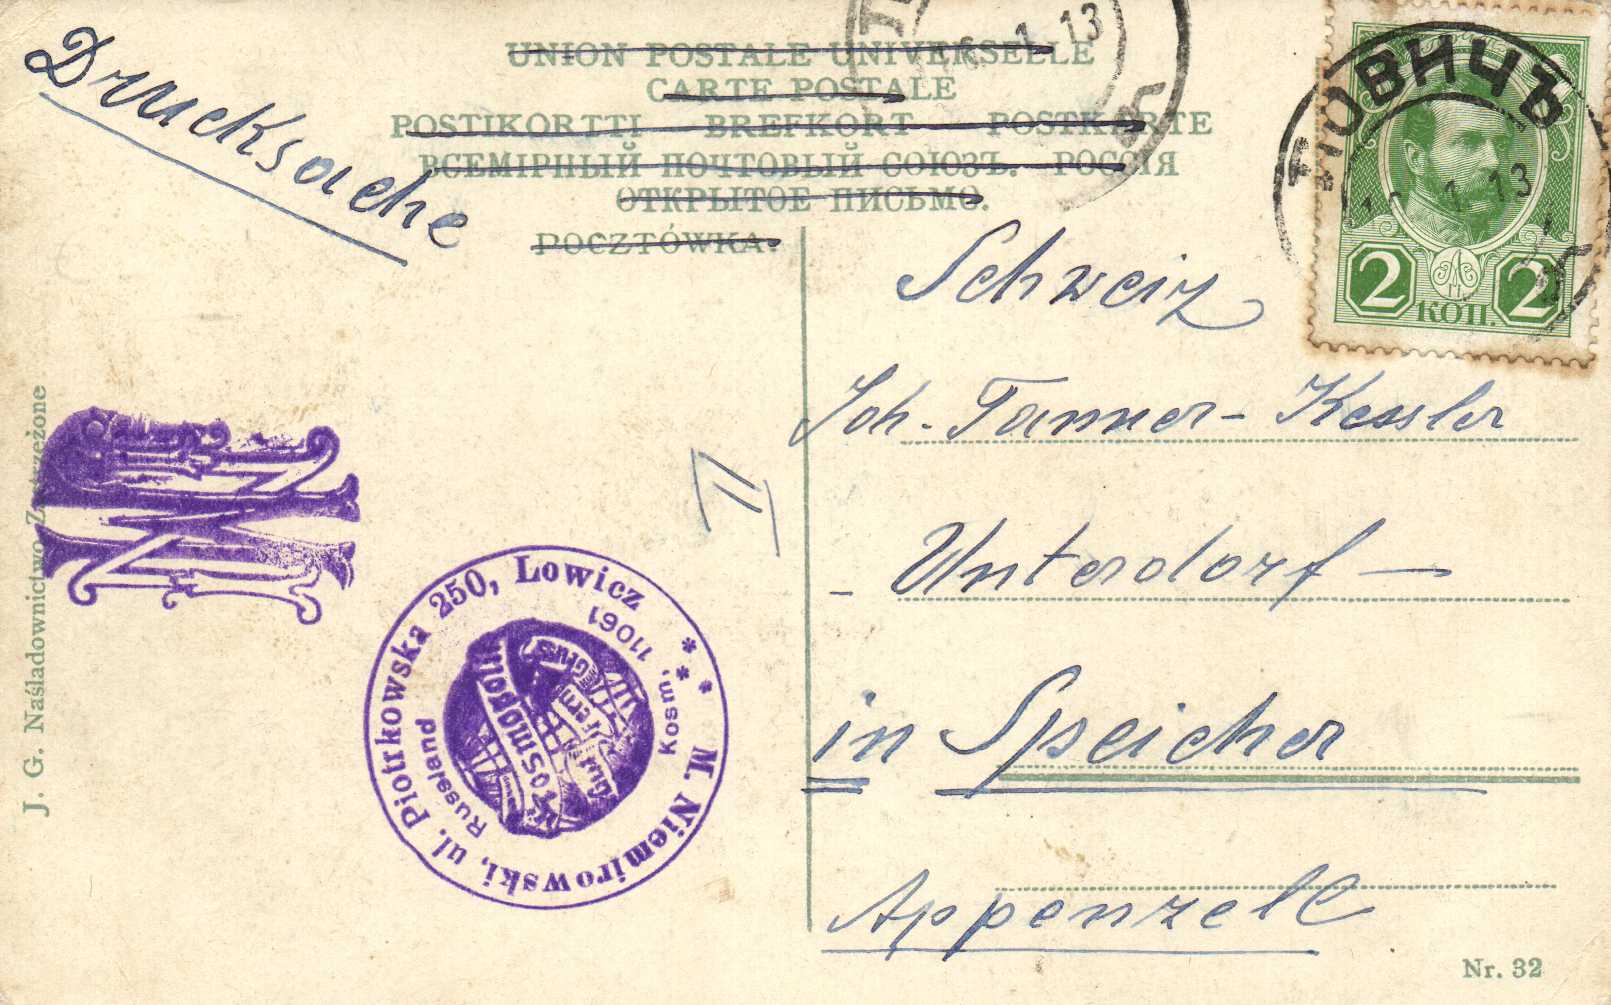 Drucksache
UNION POSTALE UNIVERSELLE
CARTE POSTALE
POSTIKORTTI BREFKORT POSTKARTE
ВСЕМІРНЫЙ ПОЧТОВЫЙ СОЮЗЪ. РОССІЯ
ОТКРЫТОЕ ПИСЬМО.
POCZTÓWKA.
1 13
ЛОВИЧЪ
1 13
2 КОП. 2
Schweiz
Joh. Tanner-Kessler
Unterdorf —
in Speicher
Appenzell
J. G. Naśladownictwo
M. Niemirowski, ul. Piotrkowska 250, Lowicz
Russland
Kosm, 11061
Kosmopolit
Nr. 32